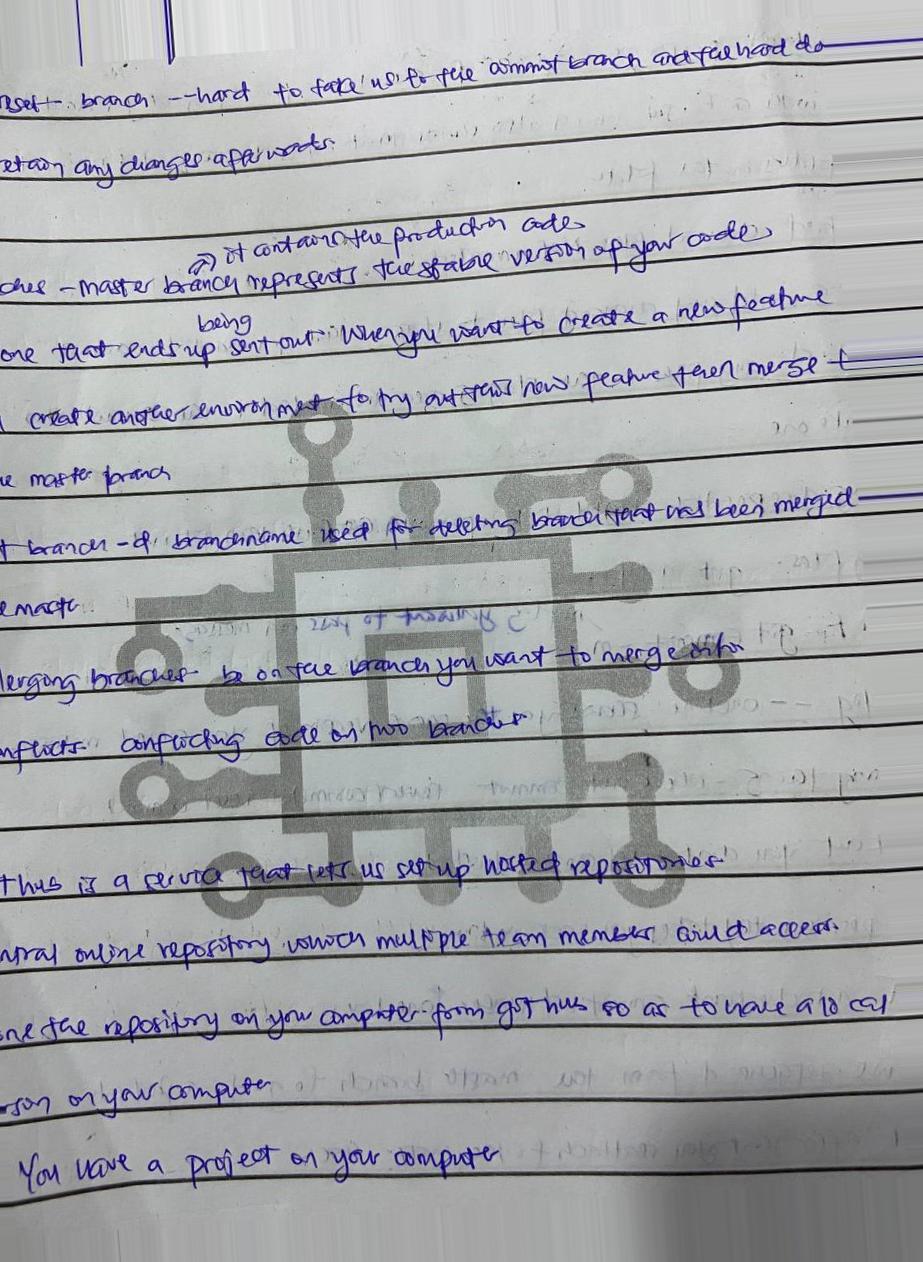 reset branch --hard to take us to the commit branch and the hard do
etain any changes afterwards.
it contains the production code
ches - master branch represents the stable version of your code,
being
one that ends up sent out. When you want to create a new feature
create another environment to try out this new feature then merge t
e master branch
t branch -d branchname used for deleting branch that has been merged
e maste
erging branches - be on the branch you want to merge into
nflicts - conflicting code on two branches
thub is a service that lets us set up hosted repositories
ntral online repository which multiple team members could access.
one the repository on your computer from github so as to have a local
rsion on your computer
You have a project on your computer